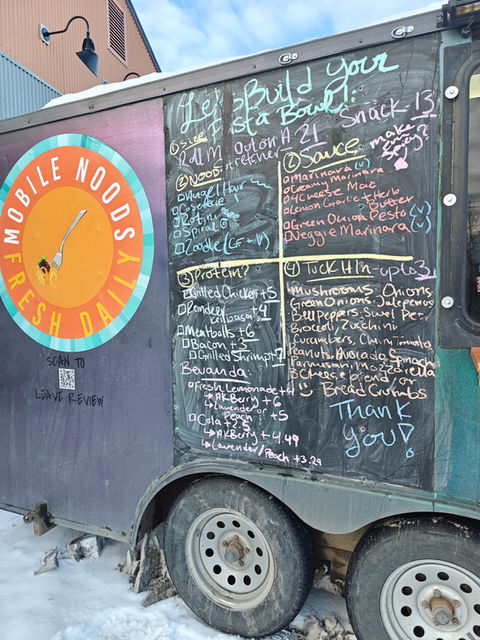 MOBILE NOODS
FRESH DAILY
SCAN TO
LEAVE REVIEW
Let's Build Your
Pasta Bowl!
① Size
Snack 13
21
make it
spicy?
② Noods
Angel Hair
Rotini
Spiral
Zoodle (GF + V)
② Sauce
Marinara (V)
Creamy Marinara
4 Cheese Mac
Lemon Garlic & Herb
Butter
Green Onion Pesta (V)
Veggie Marinara (V)
③ Protein?
Grilled Chicken +5
Reindeer
Kielbasa +4
Meatballs +6
Bacon +3
Grilled Shrimp +7
④ Tuck it In - up to 3
Mushrooms Onions
Green Onions Jalepenos
Bell Peppers, Sweet Pep.
Broccoli, Zucchini
Cucumbers, Cherry Tomato,
Peanuts, Avocado Spinach
Parmesan, Mozzarella
3 Cheese blend / or
Bread Crumbs
Bevanda:
Fresh Lemonade +4
AKBerry +6
Lavender or
Peach +5
Cola +2.5
AKBerry +4.49
Lavender/Peach +3.29
Thank
you!